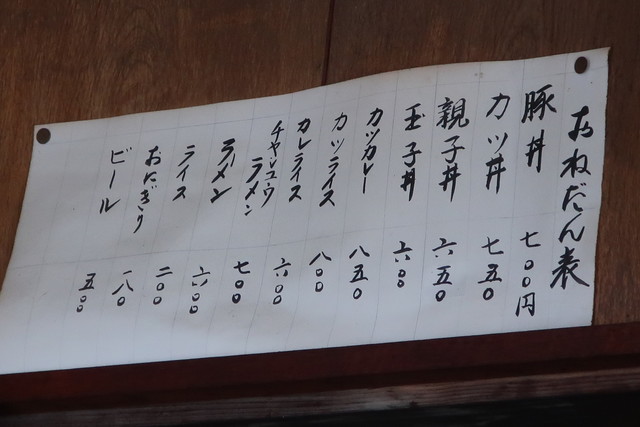 おねだん表
豚丼 七〇〇円
カツ丼 七五〇
親子丼 六五〇
玉子丼 六〇〇
カツカレー 八五〇
カツライス 八〇〇
カレライス 六〇〇
チャシュウ
ラメン 七〇〇
ラーメン 六〇〇
ライス 二〇〇
おにぎり 一八〇
ビール 五〇〇